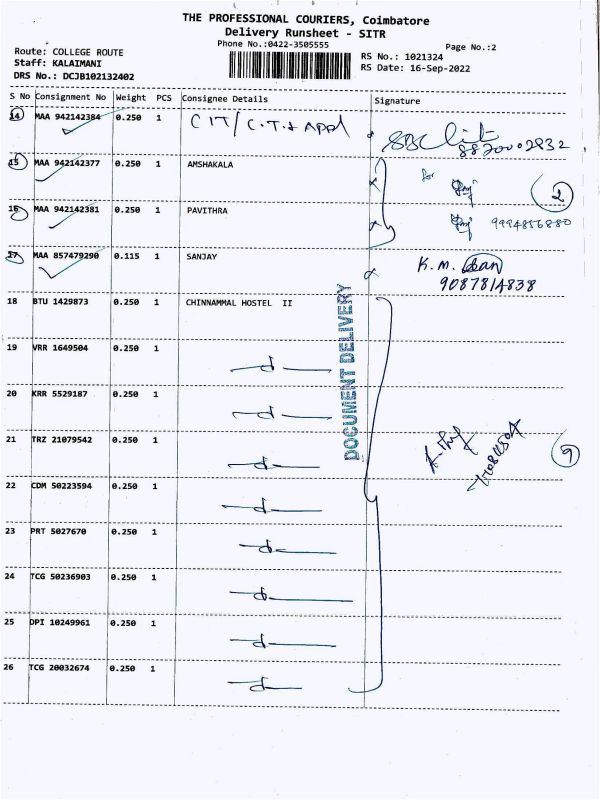 THE PROFESSIONAL COURIERS, Coimbatore
Delivery Runsheet - SITR
Phone No.:0422-3505555
Page No.:2
Route: COLLEGE ROUTE
Staff: KALAIMANI
DRS No.: DCJB102132402
RS No.: 1021324
RS Date: 16-Sep-2022
S No Consignment No Weight PCS Consignee Details Signature
14 MAA 942142384 0.250 1 CIT/
15 MAA 942142377 0.250 1 AMSHAKALA
2
16 MAA 942142381 0.250 1 PAVITHRA 9994856880
17 MAA 857479290 0.115 1 SANJAY K.M.
9087814838
18 BTU 1429873 0.250 1 CHINNAMMAL HOSTEL II
DOCUMENT DELIVERY
19 VRR 1649504 0.250 1
20 KRR 5529187 0.250 1
21 TRZ 21079542 0.250 1
9
22 CDM 50223594 0.250 1
23 PRT 5027670 0.250 1
24 TCG 50236903 0.250 1
25 DPI 10249961 0.250 1
26 TCG 20032674 0.250 1